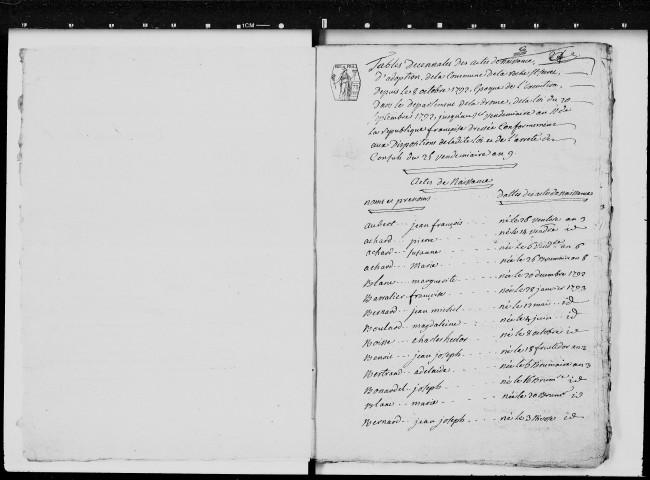 1CM
Tables Decennales des actes de Naissance,
d'adoption, de la Commune de la
depuis le 8 octobre 1792, Epoque de l'Execution,
Dans le departement de la Drome, de la loi du 20
septembre 1792, jusqu'au 1er vendemiaire an
la republique française dressée Conformement
aux Dispositions de ladite loi et de l'arreté des
Consuls du 25 vendemiaire an 9.
Actes de Naissance
noms et prenoms
Dattes des actes de naissance
aubert jean françois né le 28 ventose an 3
achard pierre né le 14 id
achard susanne née le 6 vend.re an 6
achard marie née le 26 Brumaire an 8
Blanc marguerite née le 20 decembre 1792
Barralier françoise née le 28 janvier 1793
Bernard jean michel né le 12 mai id
Boulard magdeleine née le 4 juin id
Boisse charles hector né le 8 octobre id
Benoit jean joseph né le 18 fructidor an 2
Bertrand adelaide née le 6 Brumaire an 3
Bonnardel joseph né le 16 Brum.re id
Blanc marie née le 20 Brum.re id
Bernard jean joseph né le 3 id